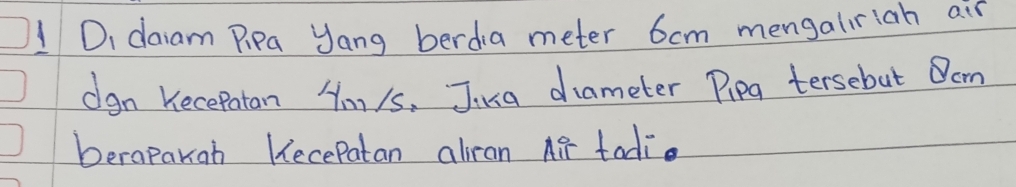 1 Di dalam Pipa yang berdia meter 6cm mengalirlah air
dgn kecepatan 4m/s. Jika diameter Pipa tersebut 8cm
berapakah kecepatan aliran Air tadi.